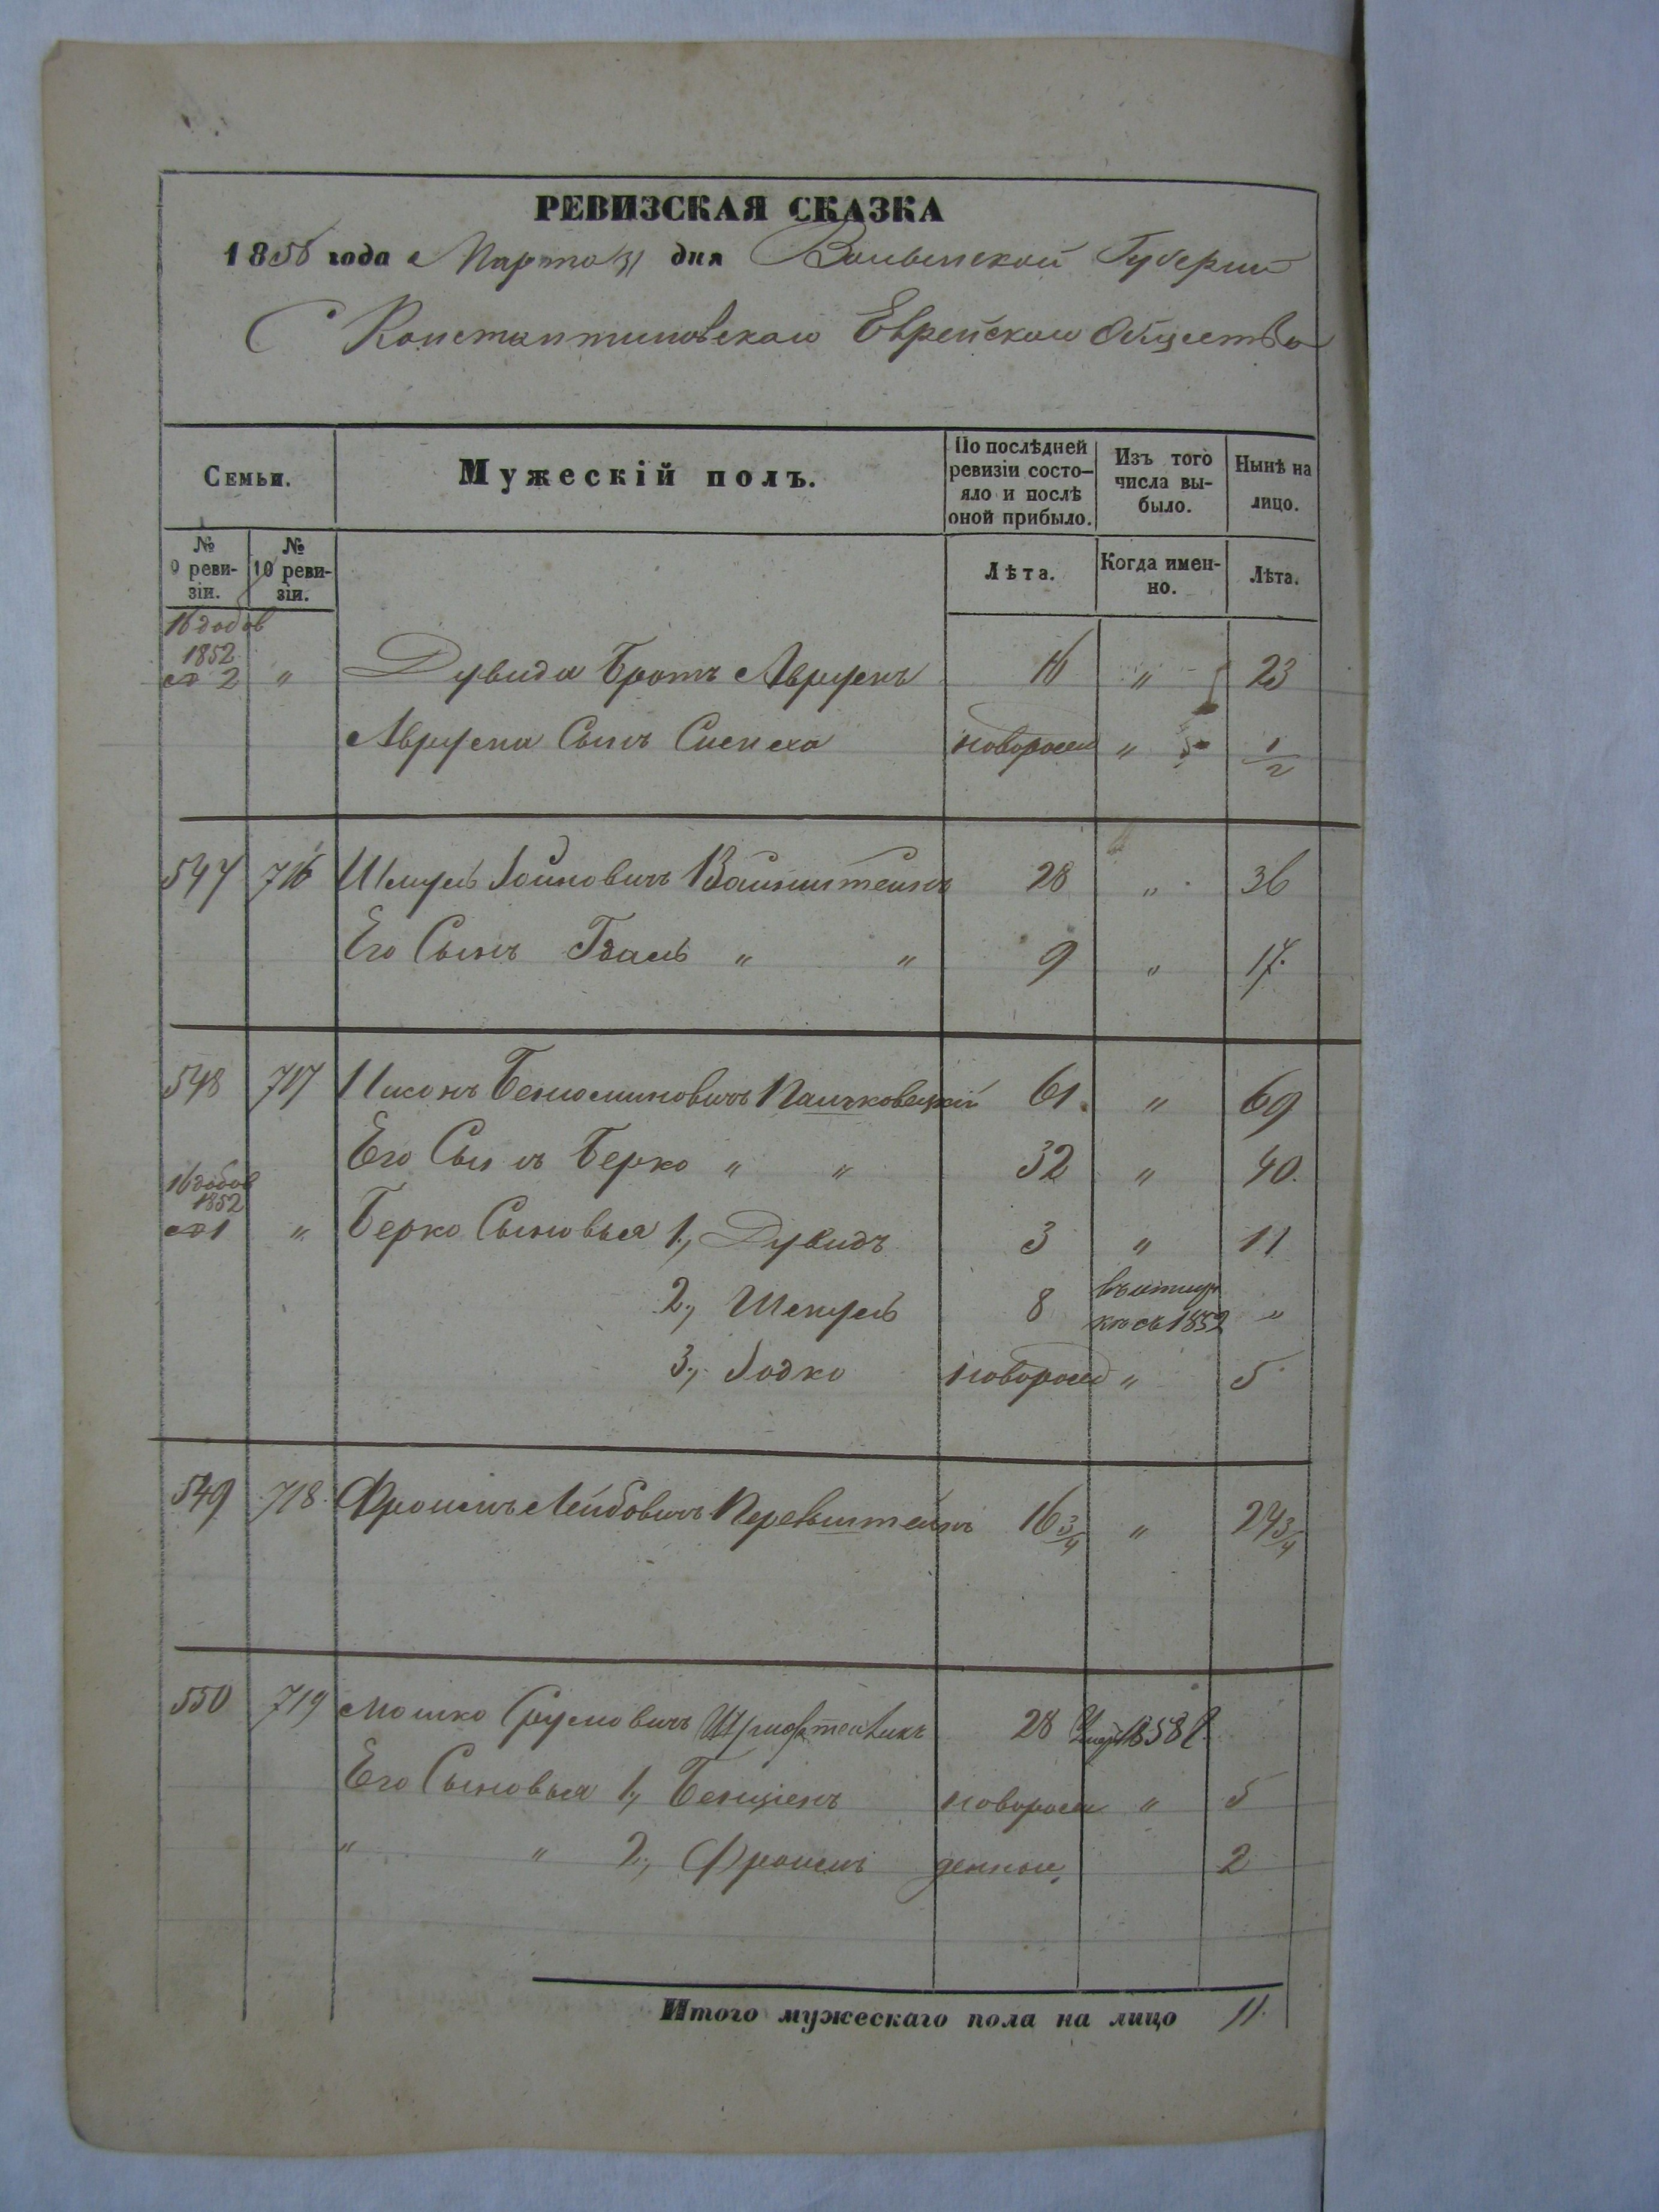 РЕВИЗСКАЯ СКАЗКА
1858 года Марта 31 дня Волынской Губерніи
С Константиновскаго Еврейскаго Общества
Семьи. Мужескій полъ. По послѣдней ревизіи состо-яло и послѣ оной прибыло. Изъ того числа вы-было. Нынѣ на лицо.
№ 9 реви-зіи. № 10 реви-зіи. Лѣта. Когда имен-но. Лѣта.
16 добов
1852
ст 2 " Дувида Братъ Аврумъ 16 " 23
Аврума Сынъ Симха новорожд " 1/2
547 716 Шмуль Іойновичъ Вайнштейнъ 28 " 36
Его Сынъ Гдаль " " 9 " 17.
548 717 Нисонъ Беніоминовичъ Пашковецкій 61. " 69
Его Сынъ Берко " " 32 " 40.
16 добов
1852
ст 1 " Берко Сыновья 1., Дувидъ 3 " 11
2., Шмуль 8 1852 "
3., Іодко новорожд " 5
549 718. Фроимъ Лейбовичъ Перельштейнъ 16 3/4 " 24 3/4
550 719 Мошко Срулевичъ 28 1858
Его Сыновья 1., Бенціенъ новорож " 5
" " 2., Фроимъ денные 2
Итого мужескаго пола на лицо 11.